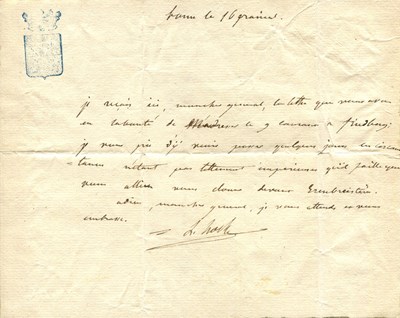 le 16 prairial.
je reçois ici, mon cher general, la lettre que vous avez
eu la bonté de le 9 courant a
je vous prie d'y venir passer quelques jours les circons
= tances n'étant pas tellement impérieuses qu'il faille que
vous alliez vous devant Erenbreistein.
adieu, mon cher general, je vous attends et vous
embrasse.
L. hoche